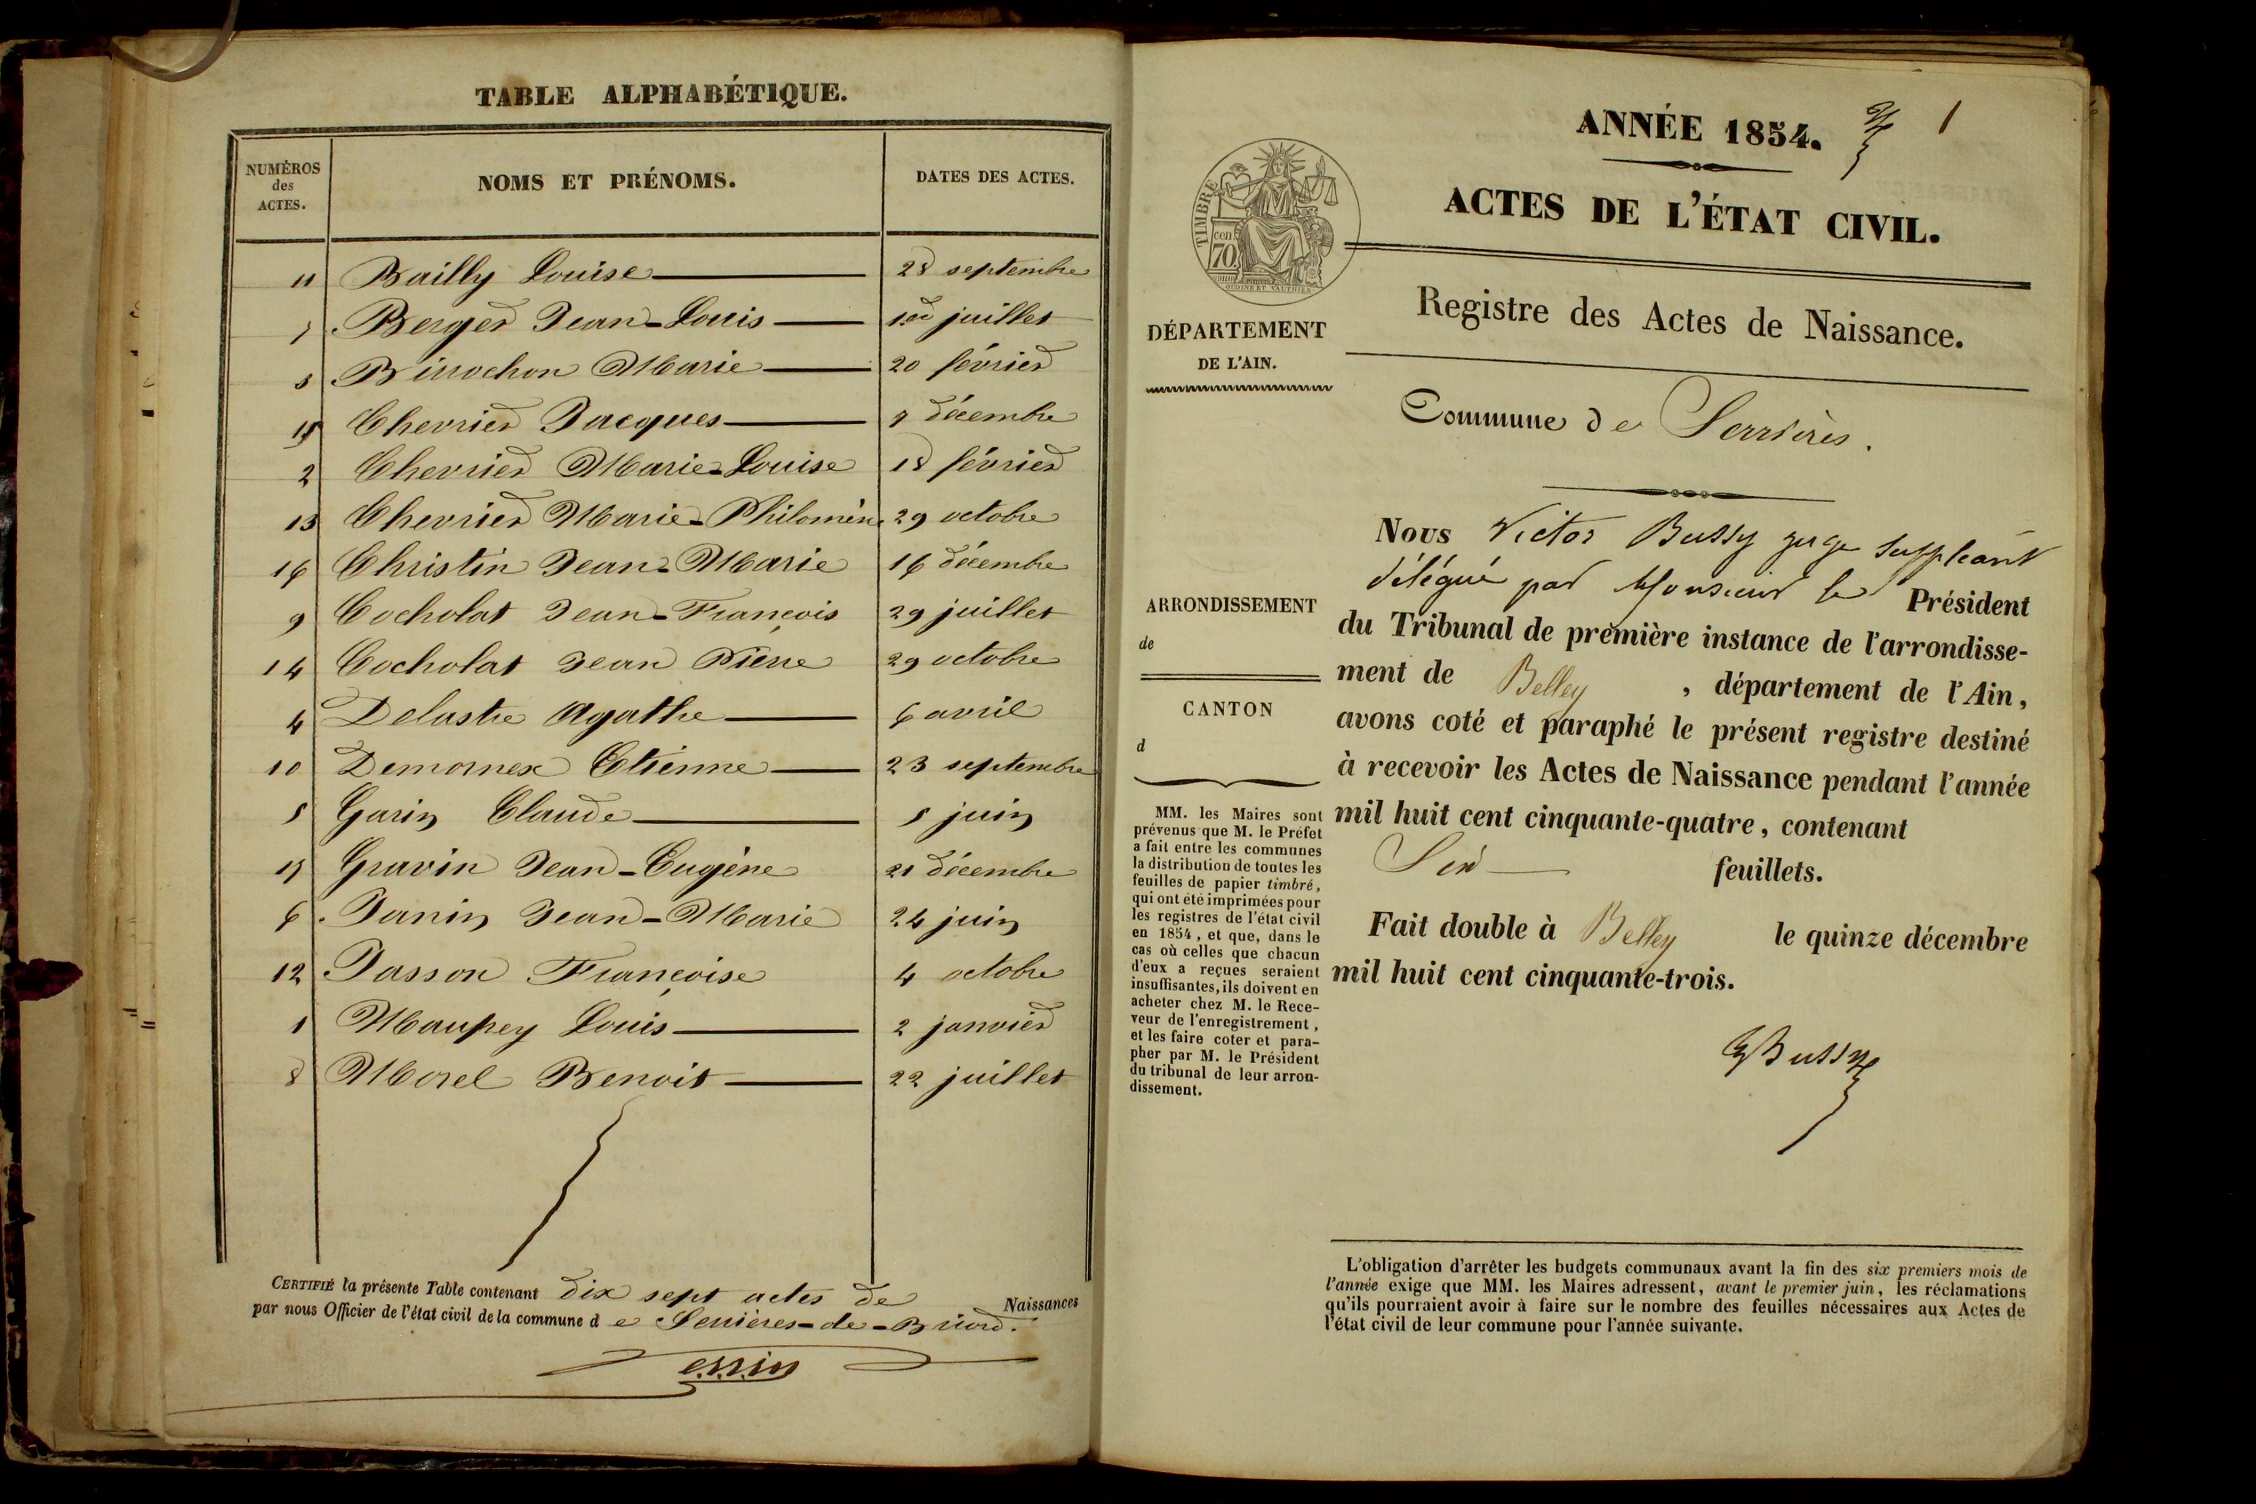 TABLE ALPHABÉTIQUE.
NUMÉROS des ACTES. NOMS ET PRÉNOMS. DATES DES ACTES.
11 Bailly Louise 28 septembre
7 Berger Jean-Louis 1er juillet
3 Birrochon Marie 20 février
15 Chevrier Jacques 9 décembre
2 Chevrier Marie-Louise 18 février
13 Chevrier Marie-Philomène 29 octobre
16 Christin Jean-Marie 16 décembre
9 Cocholat Jean-François 29 juillet
14 Cocholat Jean Pierre 29 octobre
4 Delastre Agathe 6 avril
10 Demornex Etienne 23 septembre
5 Garin Claude 5 juin
17 Gravin Jean-Eugène 21 décembre
6 Janin Jean-Marie 24 juin
12 Jasson Françoise 4 octobre
1 Maupey Louis 2 janvier
8 Morel Benoit 22 juillet
CERTIFIÉ la présente Table contenant dix sept actes de Naissances
par nous Officier de l'état civil de la commune de Serrières-de-Briord.
ANNÉE 1854. 1
ACTES DE L'ÉTAT CIVIL.
TIMBRE
70
Registre des Actes de Naissance.
DÉPARTEMENT
DE L'AIN.
Commune de Serrières.
ARRONDISSEMENT
de
CANTON
d
MM. les Maires sont
prévenus que M. le Préfet
a fait entre les communes
la distribution de toutes les
feuilles de papier timbré,
qui ont été imprimées pour
les registres de l'état civil
en 1854, et que, dans le
cas où celles que chacun
d'eux a reçues seraient
insuffisantes, ils doivent en
acheter chez M. le Rece-
veur de l'enregistrement,
et les faire coter et para-
pher par M. le Président
du tribunal de leur arron-
dissement.
Nous Victor Bussy juge suppléant
délégué par Monsieur le Président
du Tribunal de première instance de l'arrondisse-
ment de Belley, département de l'Ain,
avons coté et paraphé le présent registre destiné
à recevoir les Actes de Naissance pendant l'année
mil huit cent cinquante-quatre, contenant
Six feuillets.
Fait double à Belley le quinze décembre
mil huit cent cinquante-trois.
Bussy
L'obligation d'arrêter les budgets communaux avant la fin des six premiers mois de
l'année exige que MM. les Maires adressent, avant le premier juin, les réclamations
qu'ils pourraient avoir à faire sur le nombre des feuilles nécessaires aux Actes de
l'état civil de leur commune pour l'année suivante.